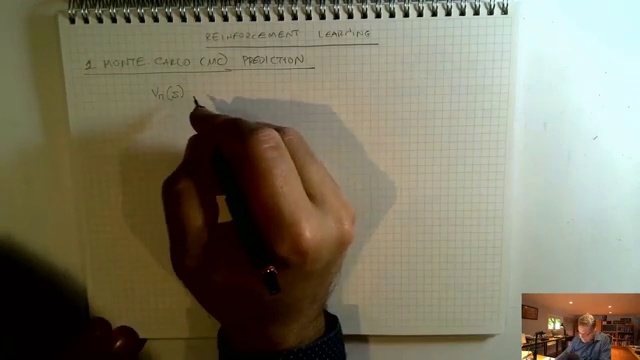 REINFORCEMENT LEARNING
1. MONTE CARLO (MC) PREDICTION
Vπ(s)